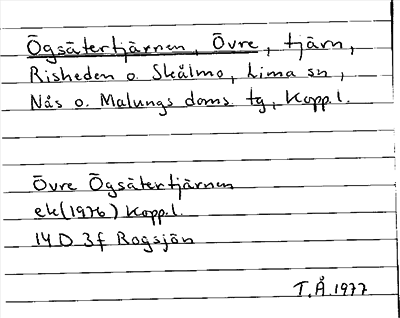 Ögsätertjärnen, Övre, tjärn,
Risheden o. Skålmo, Lima sn,
Nås o. Malungs doms. tg, Kopp.l.
Övre Ögsätertjärnen
ek(1976) Kopp.l.
14 D 3f Rogsjön
T.Å.1977